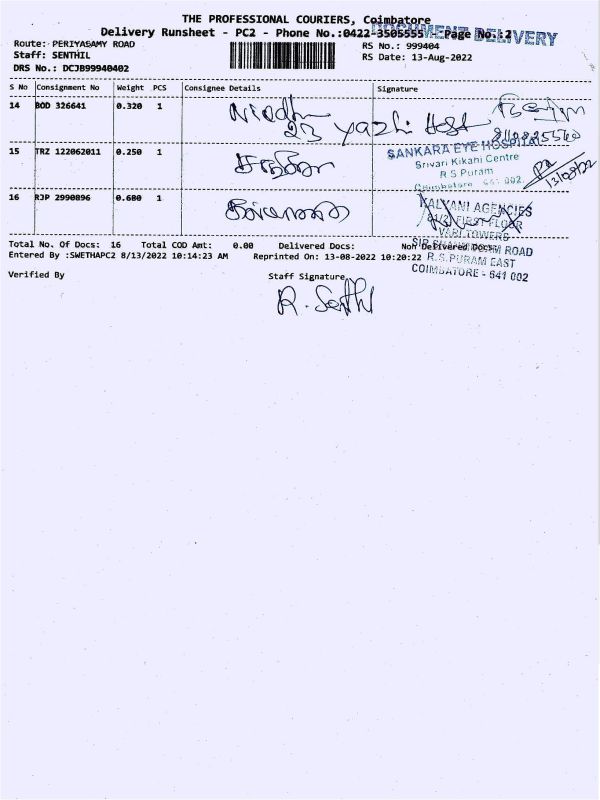 THE PROFESSIONAL COURIERS, Coimbatore
Delivery Runsheet - PC2 - Phone No.:0422-3505555 - Page No.:2
DOCUMENT DELIVERY
Route: PERIYASAMY ROAD RS No.: 999404
Staff: SENTHIL RS Date: 13-Aug-2022
DRS No.: DCJB99940402
S No Consignment No Weight PCS Consignee Details Signature
14 BOD 326641 0.320 1
23 yazhi Host
15 TRZ 122062011 0.250 1
SANKARA EYE HOSPITAL
Srivari Kikani Centre
R S Puram
Coimbatore 641 002.
13/08/22
16 RJP 2990896 0.680 1
KALYANI AGENCIES
FIRST FLOOR
VARI TOWERS
Total No. Of Docs: 16 Total COD Amt: 0.00 Delivered Docs: Non Delivered Docs:
ROAD
Entered By :SWETHAPC2 8/13/2022 10:14:23 AM Reprinted On: 13-08-2022 10:20:22
R.S.PURAM EAST
COIMBATORE - 641 002
Verified By Staff Signature
R. Senthil